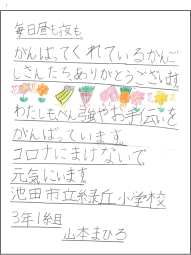 毎日昼も夜も。
がんばってくれているかんご
しさんたち、ありがとうございます。
わたしもべん強やお手伝いを
がんばっています。
コロナにまけないで、
元気にいます。
池田市立緑丘小学校
3年1組
山本まひろ